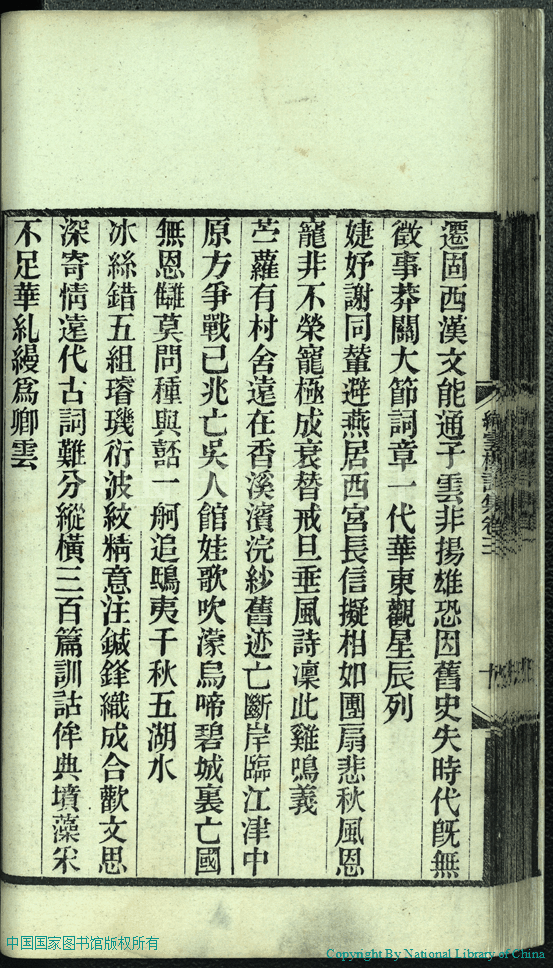 遷固西漢文能通子雲非揚雄恐因舊史失時代旣無
徵事莽關大節詞章一代華東觀星辰列
婕妤謝同輦避燕居西宮長信擬相如團扇悲秋風恩
寵非不榮寵極成衰替戒旦垂風詩凜此雞鳴義
苧蘿有村舍遠在香溪濱浣紗舊迹亡斷岸臨江津中
原方爭戰已兆亡吳人館娃歌吹濛烏啼碧城裏亡國
無恩讎莫問種與蠡一舸追鴟夷千秋五湖水
冰絲錯五組璿璣衍波紋精意注鍼鋒織成合歡文思
深寄情遠代古詞難分縱橫三百篇訓詁侔典墳藻采
不足華糺縵爲卿雲
中国国家图书馆版权所有
Copyright By National Library of China